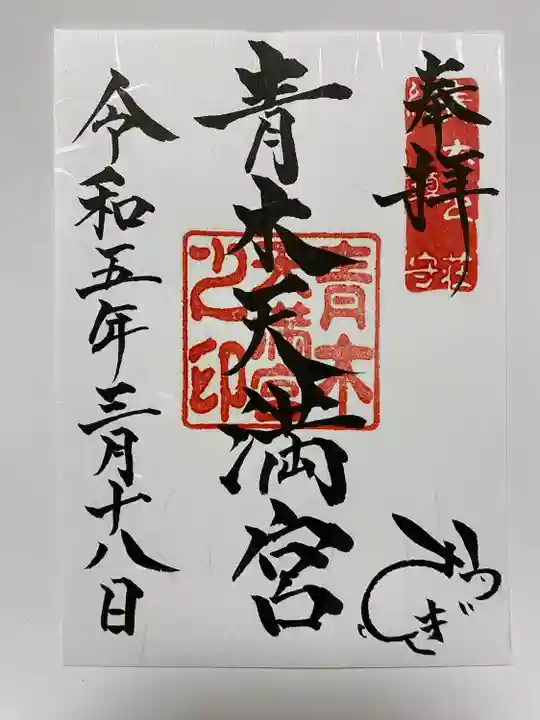 奉拝
青木天満宮
青木
天満宮
之印
令和五年三月十八日